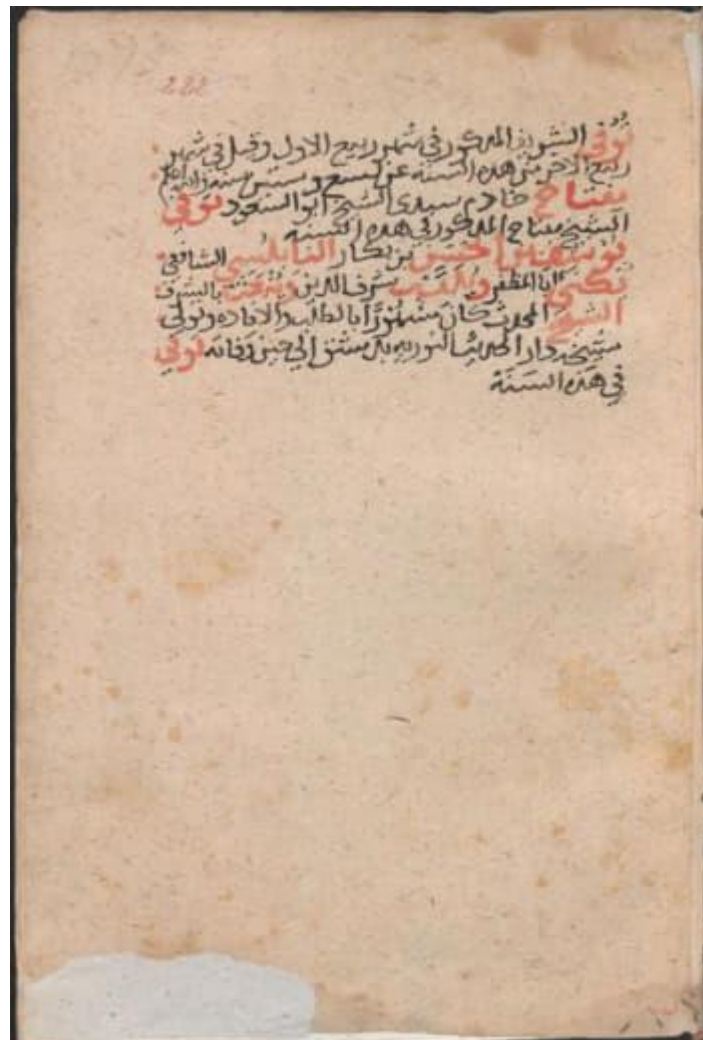 222
توفى الشويخ المذكور في شهر ربيع الاول وقيل في شهر
ربيع الاخر من هذه السنة عن تسع وستين سنة والله اعلم
مفتاح خادم سيدى الشيخ ابو السعود توفي
الشيخ مفتاح المذكور في هذه السنة
يوسف بن الحسن بن بكار النابلسي الشافعي
يكنى ابا المظفر ويلقب شرف الدين وينعت بالشرف
الشيخ المحدث كان مشهورا بالطلب والافاده وتولى
مشيخة دار الحديث النوريه بدمشق الي حين وفاته توفي
في هذه السنة